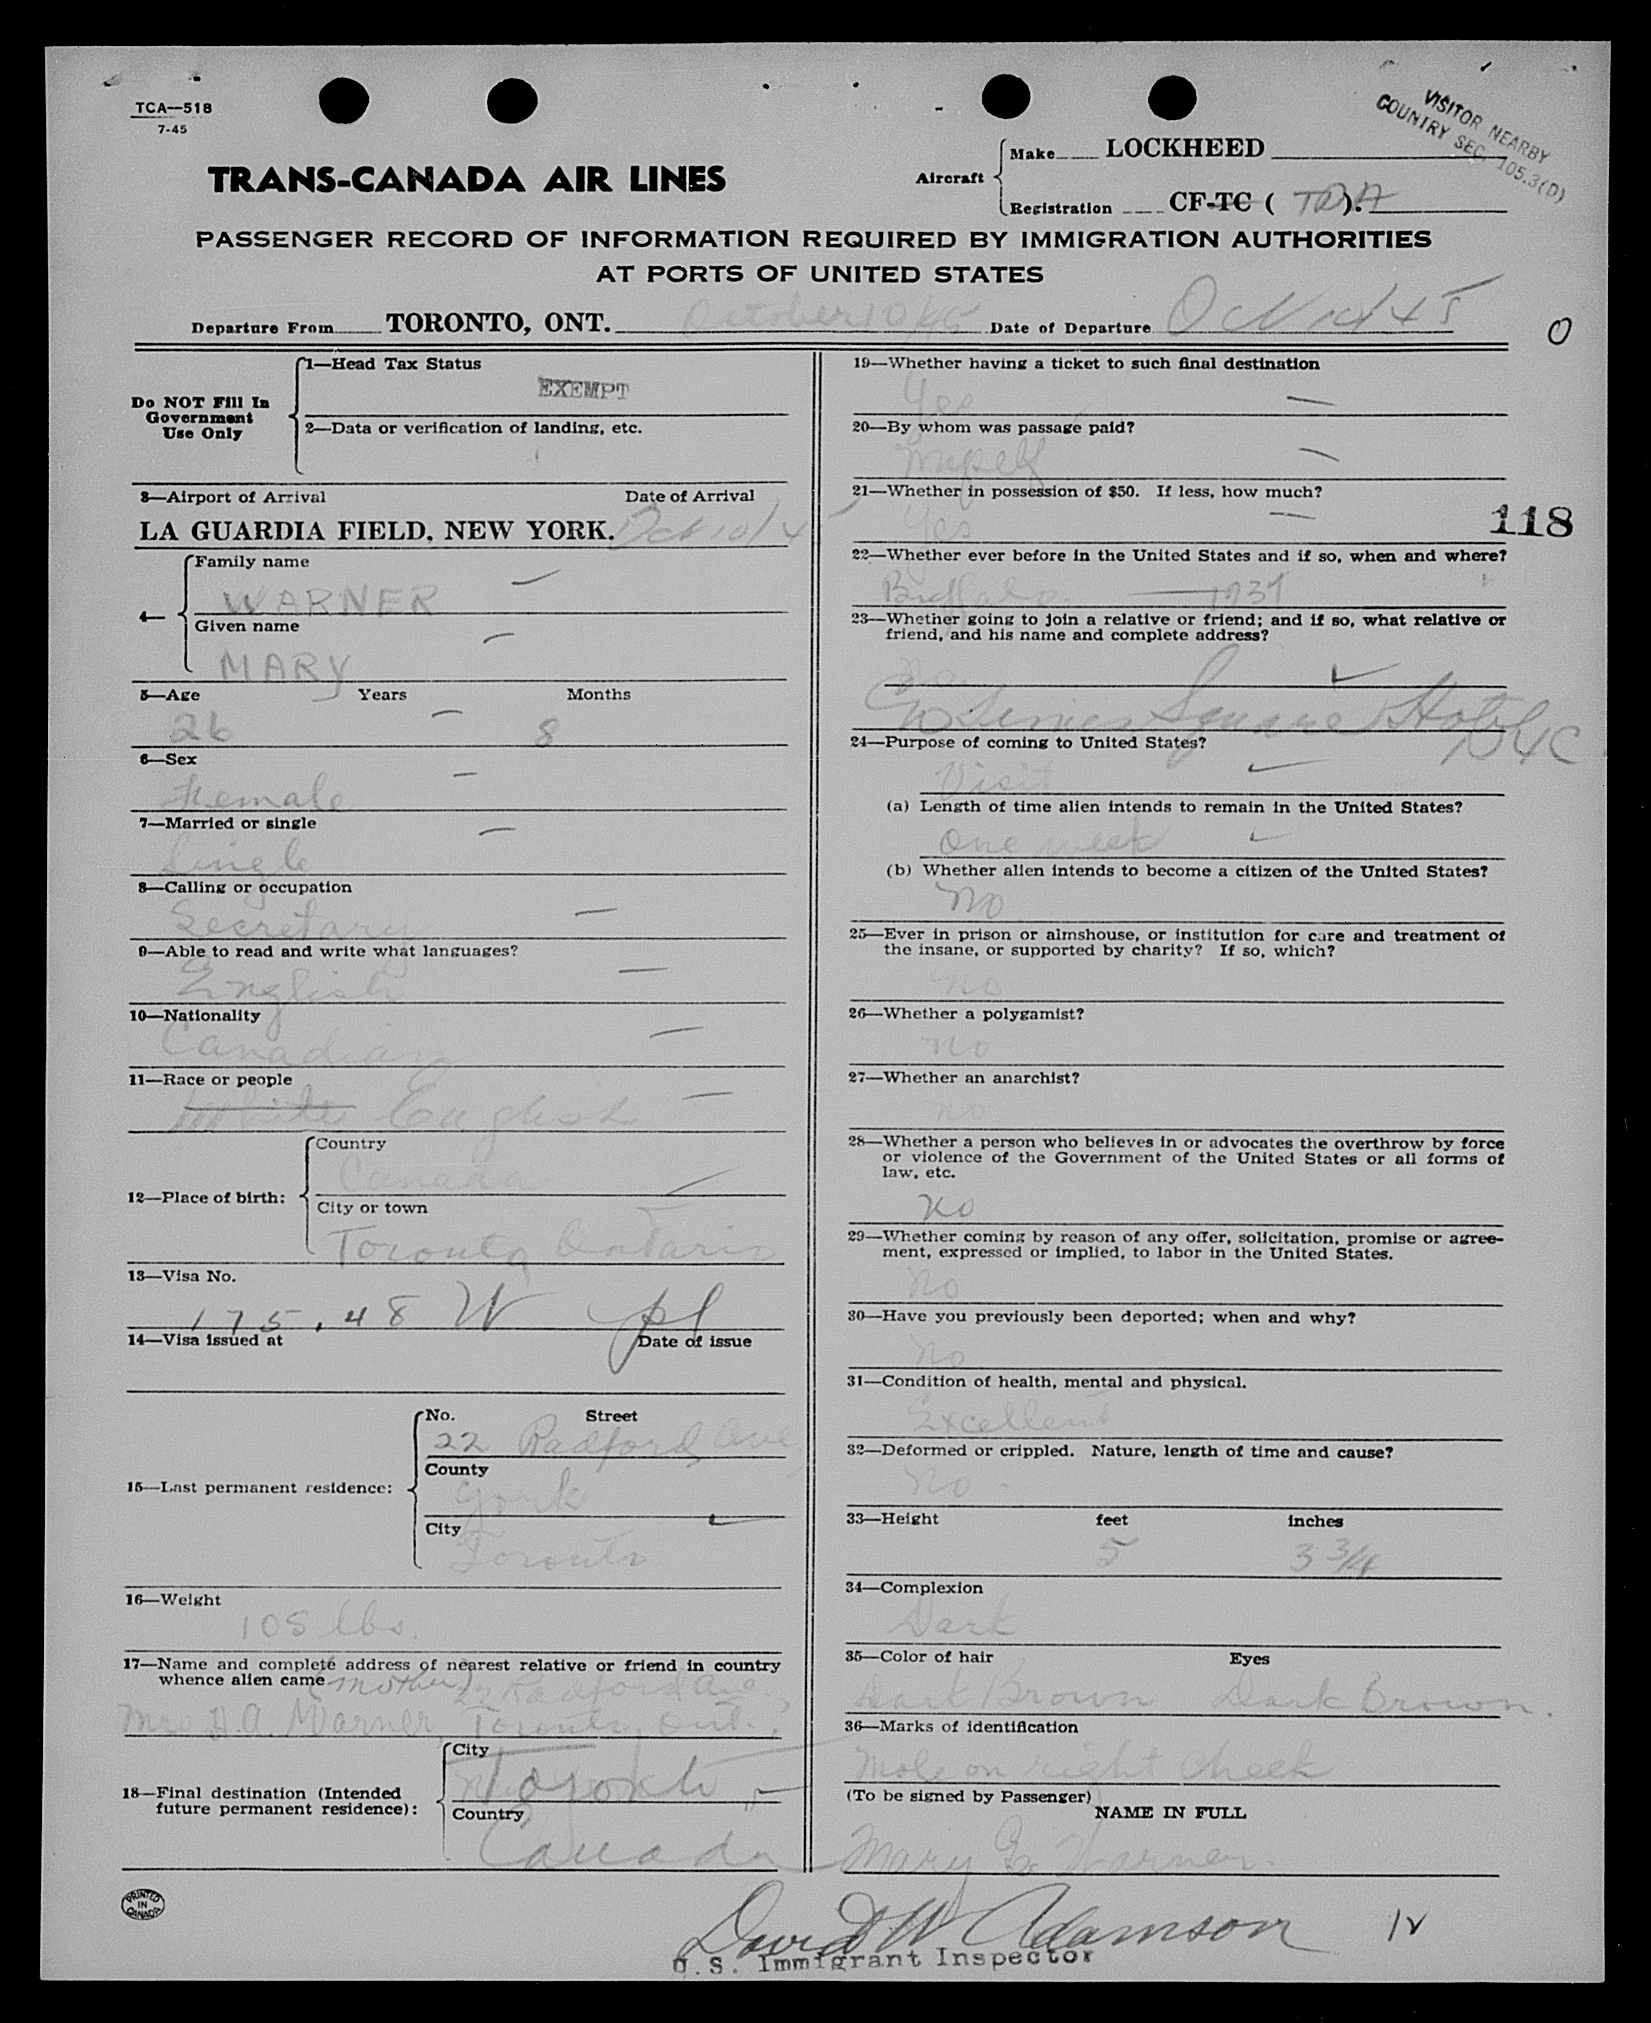 TCA—518
7-45
VISITOR NEARBY
COUNTRY SEC. 105.3(D)
TRANS-CANADA AIR LINES
Aircraft
Make LOCKHEED
Registration CF-TC ( ).
PASSENGER RECORD OF INFORMATION REQUIRED BY IMMIGRATION AUTHORITIES
AT PORTS OF UNITED STATES
Departure From TORONTO, ONT. October 10/45 Date of Departure Oct 10/45
0
Do NOT Fill In
Government
Use Only
1—Head Tax Status
EXEMPT
2—Data or verification of landing, etc.
3—Airport of Arrival Date of Arrival
LA GUARDIA FIELD, NEW YORK. Oct 10/45
4—
Family name
WARNER
Given name
MARY
5—Age Years Months
26 8
6—Sex
Female
7—Married or single
Single
8—Calling or occupation
Secretary
9—Able to read and write what languages?
English
10—Nationality
Canadian
11—Race or people
White English
12—Place of birth:
Country
Canada
City or town
Toronto Ontario
13—Visa No.
175.48 W
14—Visa issued at Date of issue
15—Last permanent residence:
No. Street
22 Radford Ave
County
York
City
Toronto
16—Weight
105 lbs.
17—Name and complete address of nearest relative or friend in country
whence alien came (Mother) 22 Radford Ave.,
Mrs. H.A. Warner, Toronto, Ont.
18—Final destination (Intended
future permanent residence):
City
Toronto
Country
Canada
19—Whether having a ticket to such final destination
Yes
20—By whom was passage paid?
Myself
21—Whether in possession of $50. If less, how much?
Yes
118
22—Whether ever before in the United States and if so, when and where?
Buffalo. — 1937
23—Whether going to join a relative or friend; and if so, what relative or
friend, and his name and complete address?
No
Times Square Hotel NYC
24—Purpose of coming to United States?
Visit
(a) Length of time alien intends to remain in the United States?
One week
(b) Whether alien intends to become a citizen of the United States?
No
25—Ever in prison or almshouse, or institution for care and treatment of
the insane, or supported by charity? If so, which?
No
26—Whether a polygamist?
No
27—Whether an anarchist?
No
28—Whether a person who believes in or advocates the overthrow by force
or violence of the Government of the United States or all forms of
law, etc.
No
29—Whether coming by reason of any offer, solicitation, promise or agree-
ment, expressed or implied, to labor in the United States.
No
30—Have you previously been deported; when and why?
No
31—Condition of health, mental and physical.
Excellent
32—Deformed or crippled. Nature, length of time and cause?
No
33—Height feet inches
5 3 3/4
34—Complexion
Dark
35—Color of hair Eyes
Dark Brown Dark Brown.
36—Marks of identification
Mole on right cheek
(To be signed by Passenger)
NAME IN FULL
Mary E. Warner.
PRINTED
IN
CANADA
David W Adamson
U.S. Immigrant Inspector